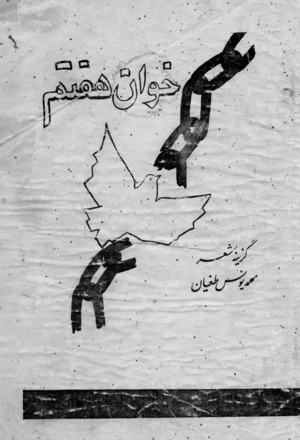 خوان هفتم
گزینهٔ شعر
محمد یونس طغیان